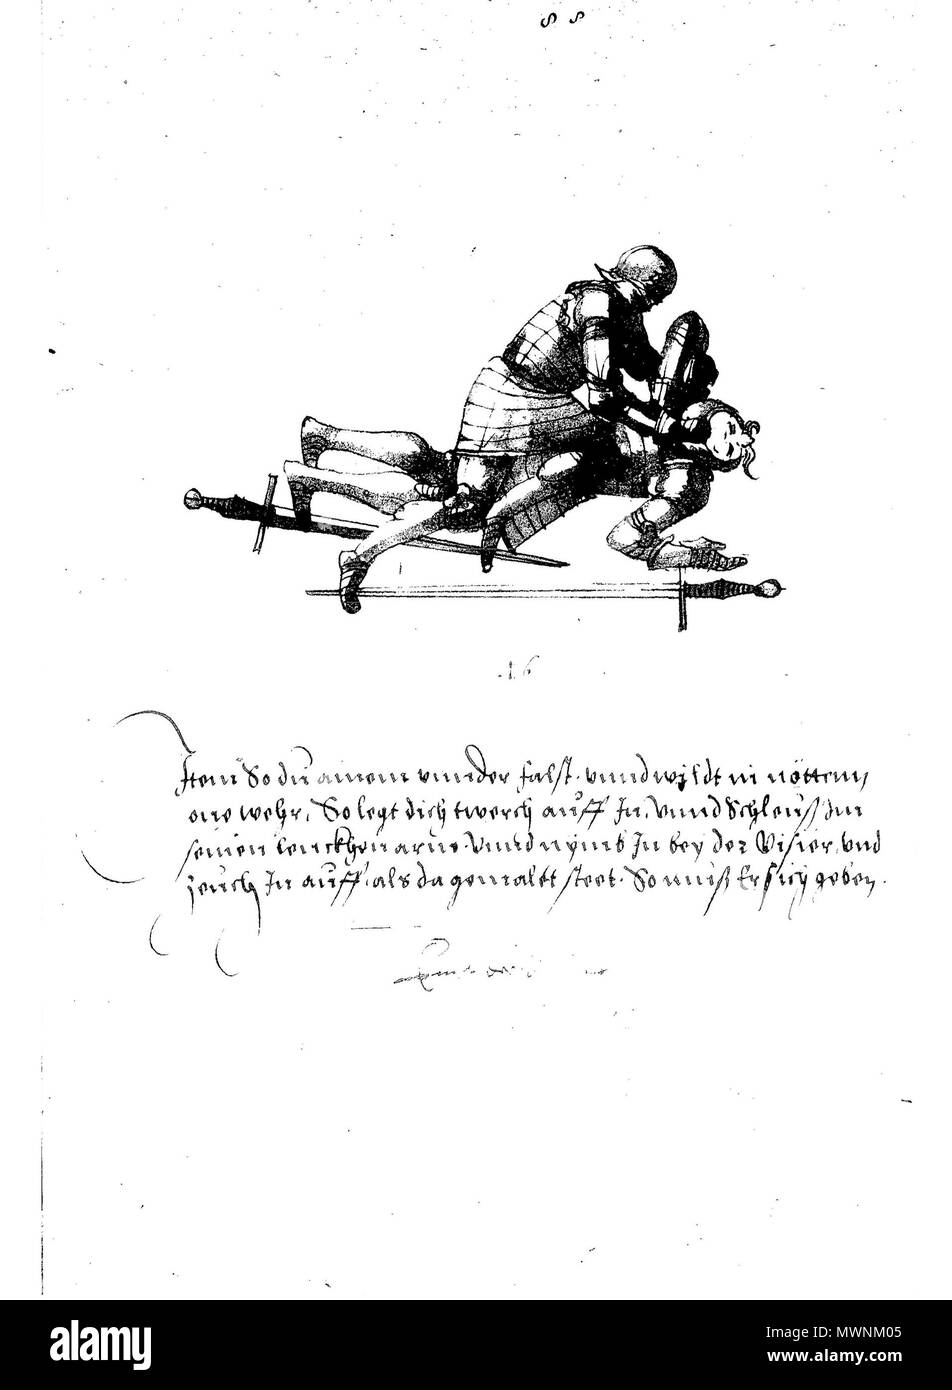 16
Item So du ainem vnnder falst. vnnd wildt in nötten,
one wehr, So legt dich twerch auff In, vnnd Schleuß Im
seinen lenckhen arm. vnnd nymb In bey der Visier, vnd
zeuch In auff, als da gemaldt steet. So muß Er sich geben.
alamy
Image ID: MWNM05
www.alamy.com